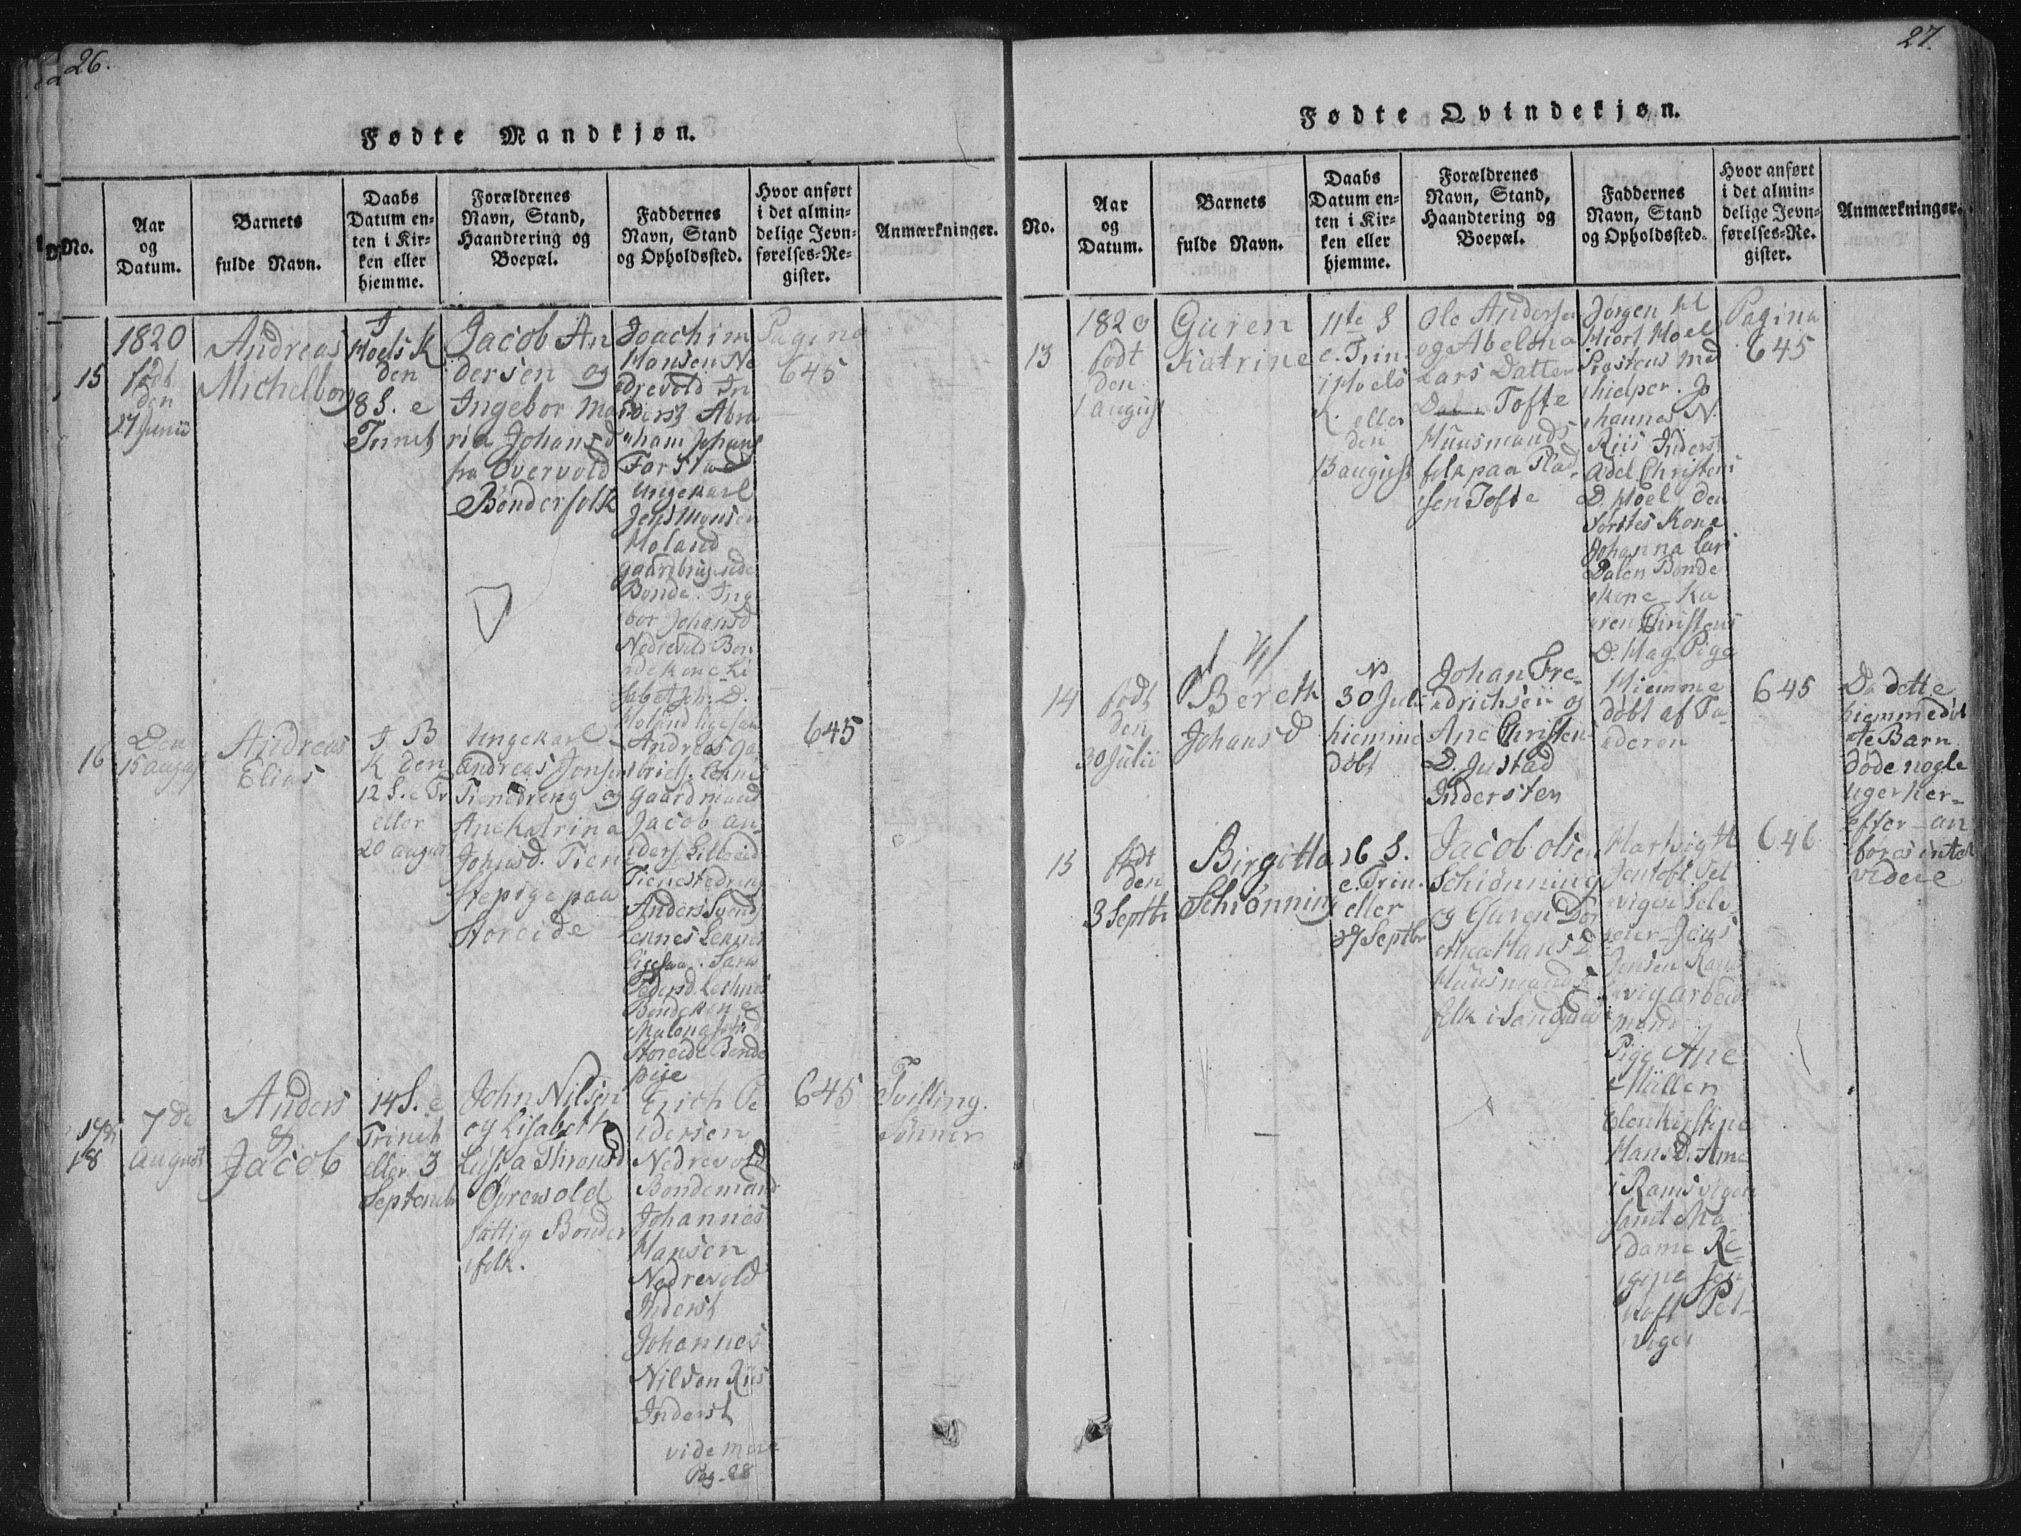 26.
Fødte Mandkjøn.
No.
Aar
og
Datum.
Barnets
fulde Navn.
Daabs
Datum en-
ten i Kir-
ken eller
hjemme.
Forældrenes
Navn, Stand,
Haandtering og
Boepæl.
Faddernes
Navn, Stand
og Opholdssted.
Hvor anført
i det almin-
delige Jevn-
førelses-Re-
gister.
Anmærkninger.
15
1820
født
den
27 Junii
Andreas
Michelborg
I
Hoels K
den
8 S. e
Trinit
Jacob An
dersen og
Ingebor Ma
ria Johansd
fra Overvold
Bønderfolk
Joachim
Hansen Ne
drevold In
derst Abra
ham Johans
Forstad
Ungekarl
Jens Monsen
Holand
gaardbrugende
Bonde. Inge
bor Johansd
Nedrevold Bon
dekone Li
sabet Jen. D.
Holand ligesaa
Pagina
645
16
Den
15 august
Andreas
Elias
I B
K den
12 S. e Tr
eller
20 august
Ungekarl
Andreas Jonsen
Tienedreng og
Anekatrina
Johnsd. Tien
stepige paa
Storeide
Andreas Ga
briels. Leknes
Gaardmand
Jacob an
ders. Lilleeid
Tienestedreng
Anders
Leknes
ligesaa.
Pedersd. Leknes
Bondekone
Storeide Bonde
pige
645
17 &
18
7de
August
Anders
&
Jacob
14 S. e
Trinit
eller 3
Septembr
John Nilsen
og Lisabeth
Lussa Thronsd
Øvrevold
fattig Bønder
folk.
Erich Pe
dersen
Nedrevold
Bondemand
Johannes
Hansen
Nedrevold
Inderst
Johannes
Nilsen Riis
Inderst
vide mere
Pag. 28
645
Tvilling
Sønner
27.
Fødte Qvindekjøn.
No.
Aar
og
Datum.
Barnets
fulde Navn.
Daabs
Datum en-
ten i Kir-
ken eller
hjemme.
Forældrenes
Navn, Stand,
Haandtering og
Boepæl.
Faddernes
Navn, Stand
og Opholdssted.
Hvor anført
i det almin-
delige Jevn-
førelses-Re-
gister.
Anmærkninger.
13
1820
født
den
1 august
Guren
Katrine
11te S
e. Trin.
i Hoels
K. eller
den
13 august
Ole Andersen
og Abelona
Lars Datter
Tofte
Huusmands
folk paa Plad
sen Tofte
Jørgen H
Hiort Hoel
Præstens Med
hielper. Jo
hannes N.
Riis Inderst
Adel Christens
D. Hoel den
førstes Kone
Johanna Lars
Dalen Bonde
kone. Ka
ren Christens
D. Hag Pige
Pagina
645
14
født
den
30 Julii
Bereth
Johans D
30 Julii
hiemme
døbt
Johan Fre-
drichsen og
Ane Christen-
D. Justad
Indersten
Hiemme
døbt af Fa-
deren
645
Da dette
hiemmedøb
te Barn
døde nogle
uger her-
efter - an
føres intet
videre
15
født
den
3 Septbr
Birgitta
Schiønning
16 S.
e. Trin.
eller
17 Septbr
Jacob Olsen
Schiønning
og Guren Do
rthea Hans D
Huusmands
folk i Sandsund
Hartvig
Jentoft Pet
vigen Selv
eier Jens
Jensen Rams
vig arbeids
mand
Pige Ane
Müller
Elenkirstine
Hansd. Ame
i Ramsvigen
samt Ma
dame Re
gine Jen
toft Pet-
vigen
646